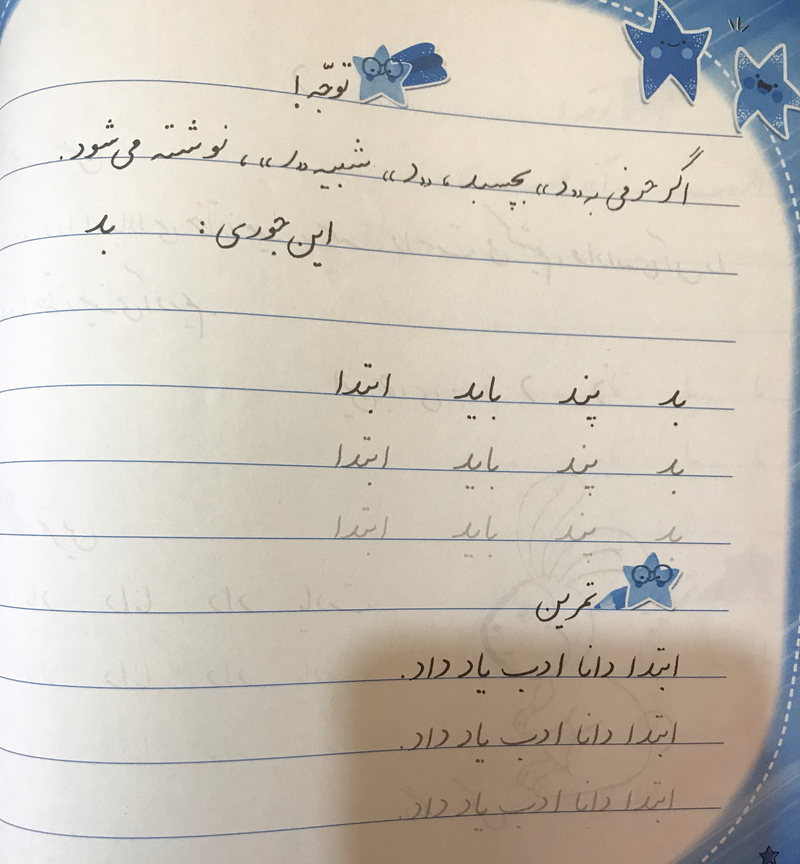 توجّه!
اگر حرفی به «د» بچسبد، «د» شبیه «ر»، نوشته می‌شود.
این جوری: بد
بد پند باید ابتدا
بد پند باید ابتدا
بد پند باید ابتدا
تمرین
ابتدا دانا ادب یاد داد.
ابتدا دانا ادب یاد داد.
ابتدا دانا ادب یاد داد.